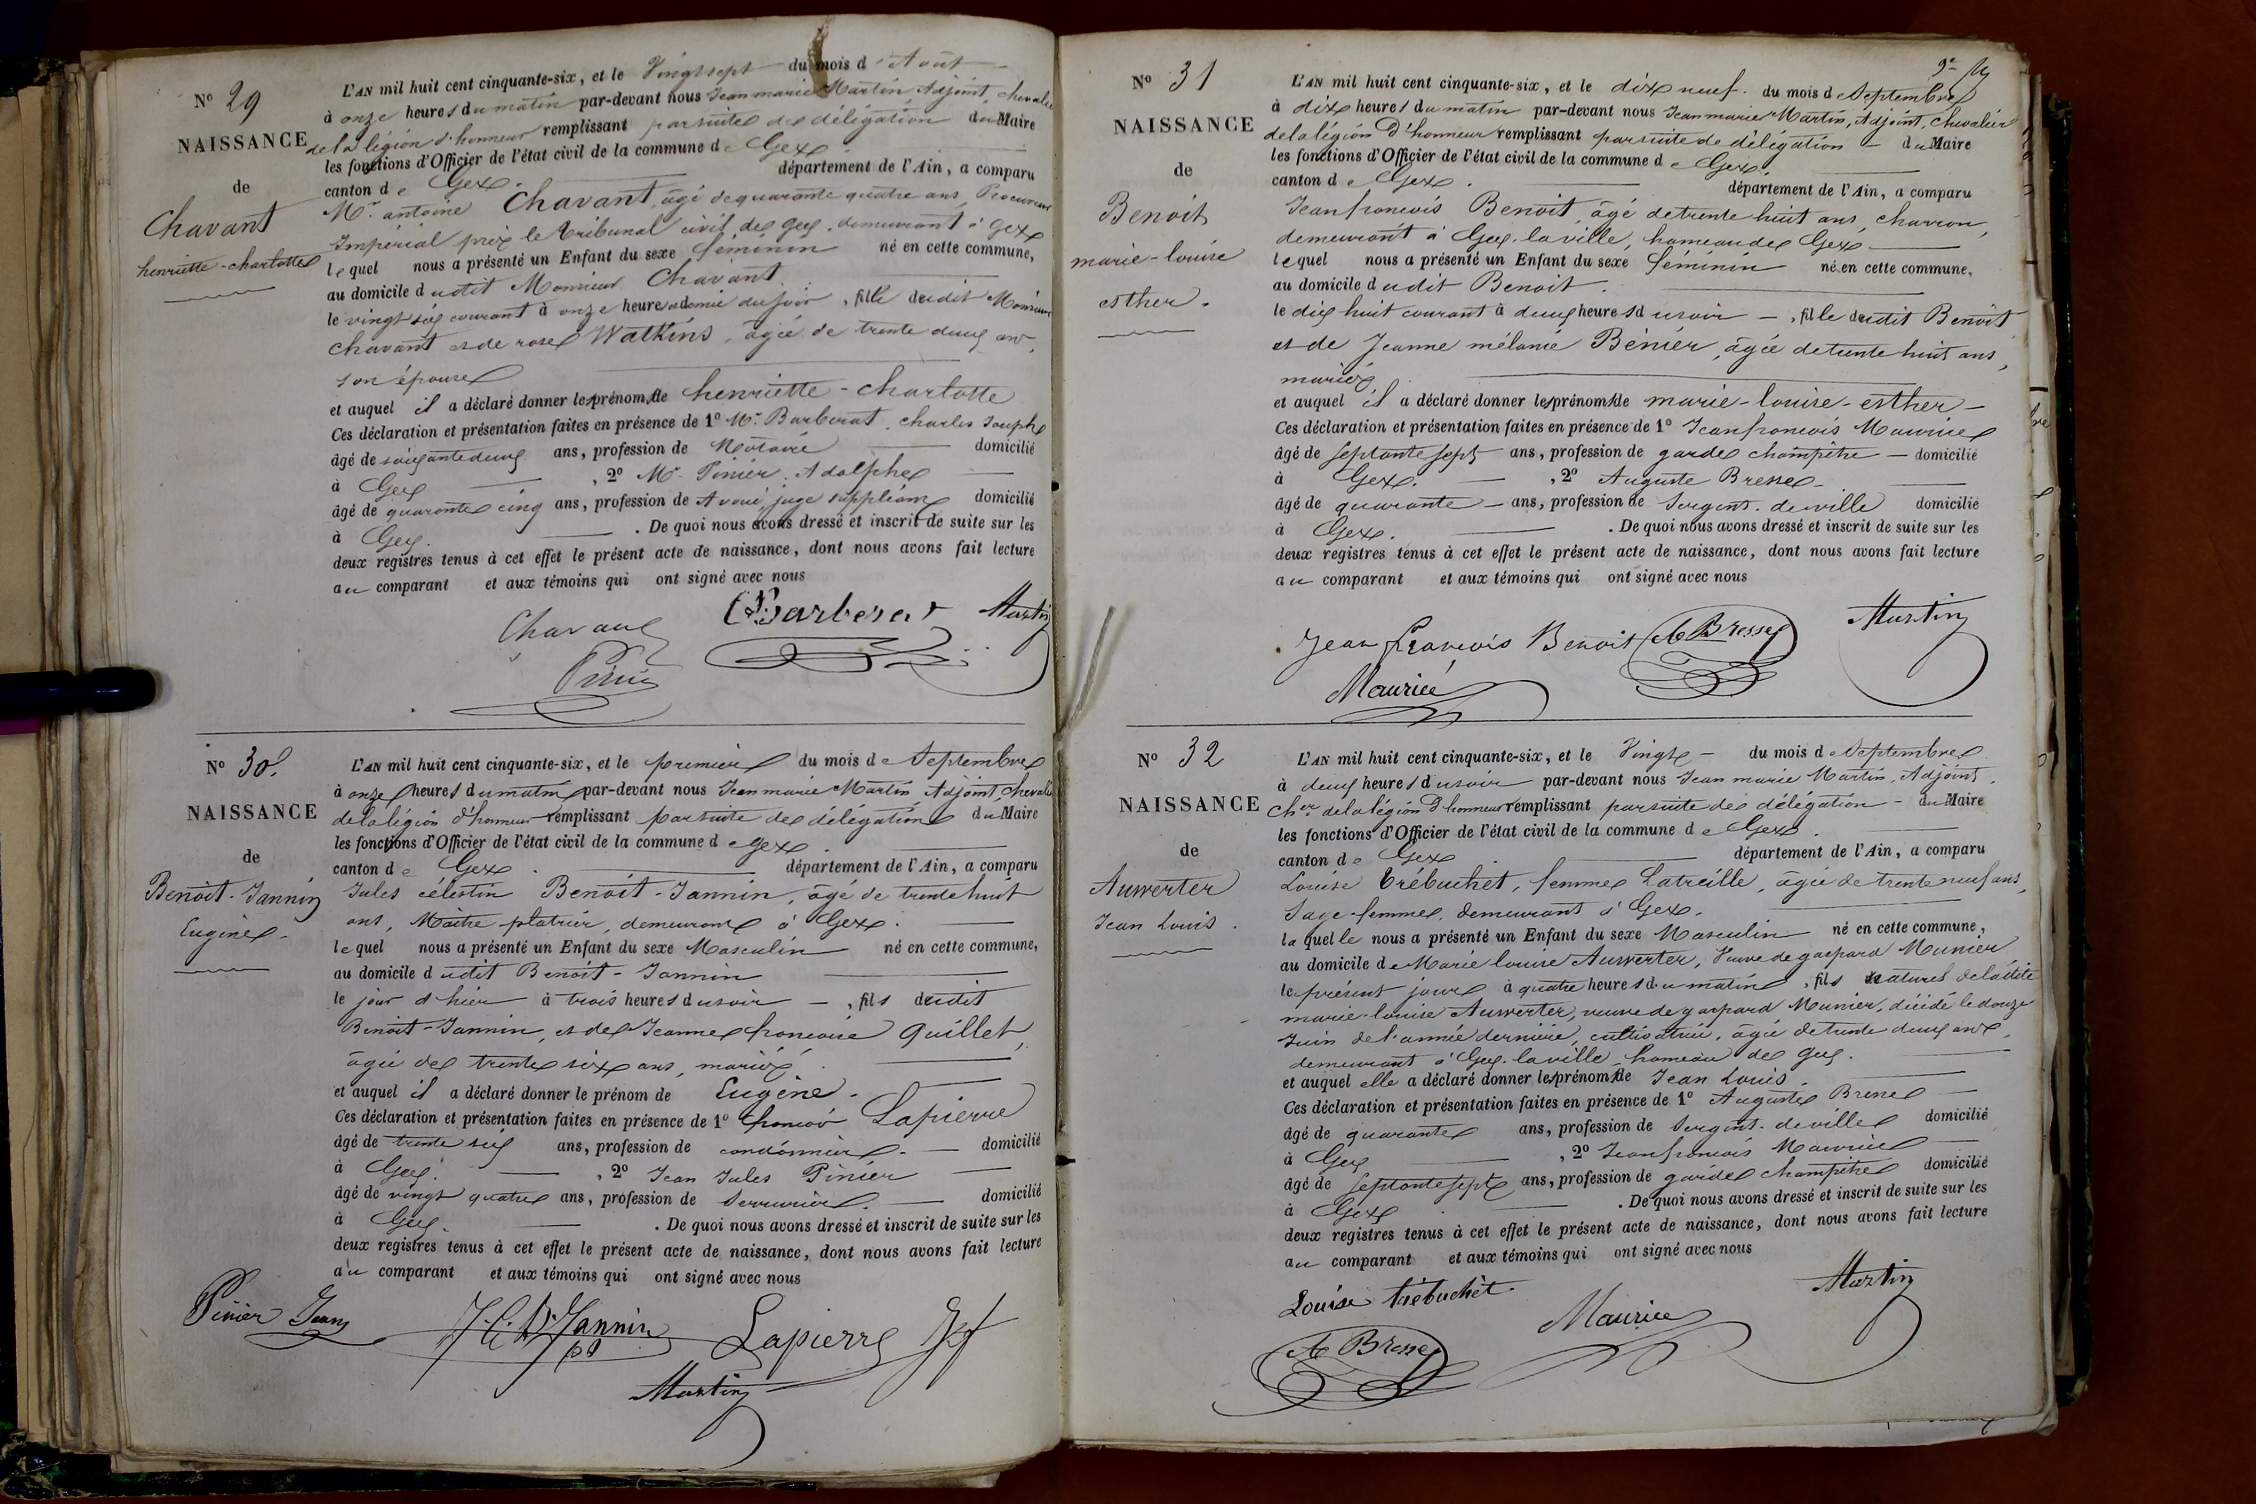 N° 29
NAISSANCE
de
Chavant
henriette-charlotte
L'AN mil huit cent cinquante-six, et le Vingt sept du mois d'Août
à onze heures du matin par-devant nous Jean marie Martin Adjoint, chevalier
de la légion d'honneur remplissant par suite de délégation du Maire
les fonctions d'Officier de l'état civil de la commune de Gex
canton de Gex. département de l'Ain, a comparu
Mr. antoine Chavant, âgé de quarante quatre ans, Procureur
Impérial près le tribunal civil de Gex, demeurant à Gex
lequel nous a présenté un Enfant du sexe féminin né en cette commune,
au domicile dudit Monsieur Chavant.
le vingt six courant à onze heures et demie du soir, fille dudit Monsieur
Chavant et de rose Watkins, âgée de trente deux ans,
son épouse
et auquel il a déclaré donner les prénoms de henriette-charlotte
Ces déclaration et présentation faites en présence de 1° Mr. Barberat, charles Joseph
âgé de soixante deux ans, profession de Notaire domicilié
à Gex, 2° Mr. Pinier, Adolphe
âgé de quarante cinq ans, profession de Avoué, juge suppléant domicilié
à Gex. De quoi nous avons dressé et inscrit de suite sur les
deux registres tenus à cet effet le présent acte de naissance, dont nous avons fait lecture
au comparant et aux témoins qui ont signé avec nous
Chavant Barberat Martin
Pinier
N° 30.
NAISSANCE
de
Benoit-Jannin
Eugène.
L'AN mil huit cent cinquante-six, et le premier du mois de Septembre
à onze heures du matin par-devant nous Jean marie Martin Adjoint, chevalier
de la légion d'honneur remplissant par suite de délégation du Maire
les fonctions d'Officier de l'état civil de la commune de gex
canton de Gex. département de l'Ain, a comparu
Jules célestin Benoit-Jannin, âgé de trente huit
ans, Maître platrier, demeurant à Gex.
lequel nous a présenté un Enfant du sexe Masculin né en cette commune,
au domicile dudit Benoit-Jannin
le jour d'hier à trois heures du soir, fils dudit
Benoit-Jannin, et de Jeanne françoise Quillet,
âgée de trente six ans, mariés.
et auquel il a déclaré donner le prénom de Eugène.
Ces déclaration et présentation faites en présence de 1° françois Lapierre
âgé de trente six ans, profession de cordonnier. domicilié
à Gex. 2° Jean Jules Pinier
âgé de vingt quatre ans, profession de Serrurier. domicilié
à Gex. De quoi nous avons dressé et inscrit de suite sur les
deux registres tenus à cet effet le présent acte de naissance, dont nous avons fait lecture
au comparant et aux témoins qui ont signé avec nous
Pinier Jean J. C. B. Jannin Lapierre
Martin
N° 31
NAISSANCE
de
Benoit
marie-louise
esther.
L'AN mil huit cent cinquante-six, et le dix neuf. du mois de Septembre
à dix heures du matin par-devant nous Jean marie Martin, Adjoint, chevalier
de la légion d'honneur remplissant par suite de délégation du Maire
les fonctions d'Officier de l'état civil de la commune de Gex.
canton de Gex. département de l'Ain, a comparu
Jean françois Benoit, âgé de trente huit ans, charron,
demeurant à Gex-la ville, hameau de Gex
lequel nous a présenté un Enfant du sexe féminin né en cette commune,
au domicile dudit Benoit.
le dix huit courant à deux heures du soir, fille dudit Benoit
et de Jeanne mélanie Bénier, âgée de trente huit ans,
mariés
et auquel il a déclaré donner les prénoms de marie-louise-esther
Ces déclaration et présentation faites en présence de 1° Jean françois Maurice
âgé de septante sept ans, profession de garde champêtre domicilié
à Gex. 2° Auguste Bresse
âgé de quarante ans, profession de Sergent de ville domicilié
à Gex. De quoi nous avons dressé et inscrit de suite sur les
deux registres tenus à cet effet le présent acte de naissance, dont nous avons fait lecture
au comparant et aux témoins qui ont signé avec nous
Jean François Benoit A Bresse Martin
Maurice
N° 32
NAISSANCE
de
Auwerter
Jean Louis.
L'AN mil huit cent cinquante-six, et le Vingt du mois de Septembre
à deux heures du soir par-devant nous Jean marie Martin, Adjoint,
cher. de la légion d'honneur remplissant par suite de délégation du Maire
les fonctions d'Officier de l'état civil de la commune de Gex.
canton de Gex département de l'Ain, a comparu
Louise Trébuchet, femme Latreille, âgée de trente neuf ans,
Sage-femme, demeurant à Gex.
laquelle nous a présenté un Enfant du sexe Masculin né en cette commune,
au domicile de Marie louise Auwerter, Veuve de gaspard Munier
le présent jour à quatre heures du matin, fils naturel de ladite
marie-louise Auwerter, veuve de gaspard Munier, décédé le douze
Juin de l'année dernière, cultivatrice, âgée de trente deux ans,
demeurant à Gex-la ville, hameau de Gex.
et auquel elle a déclaré donner les prénoms de Jean Louis.
Ces déclaration et présentation faites en présence de 1° Auguste Bresse
âgé de quarante ans, profession de Sergent de ville domicilié
à Gex, 2° Jean françois Maurice
âgé de septante sept ans, profession de garde champêtre domicilié
à Gex. De quoi nous avons dressé et inscrit de suite sur les
deux registres tenus à cet effet le présent acte de naissance, dont nous avons fait lecture
au comparant et aux témoins qui ont signé avec nous
Louise trébuchet Maurice Martin
A Bresse